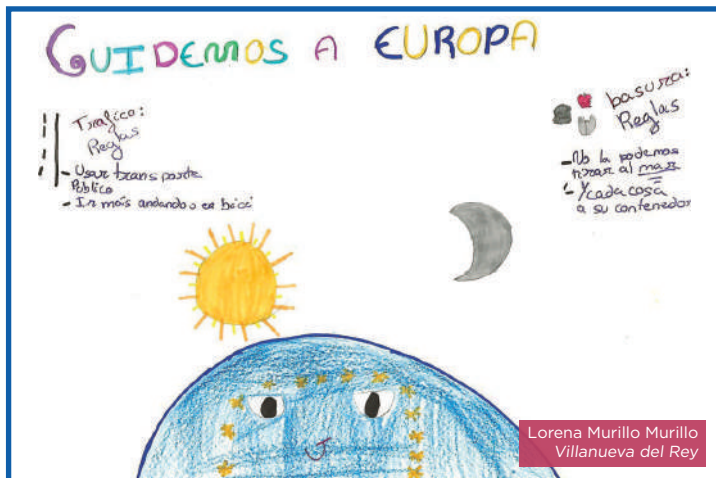 CUIDEMOS A EUROPA
Trafico:
Reglas
- Usar transporte
Publico
- Ir más andando o en bici
basura:
Reglas
- No la podemos
tirar al mar
- Y cada cosa
a su contenedor
Lorena Murillo Murillo
Villanueva del Rey